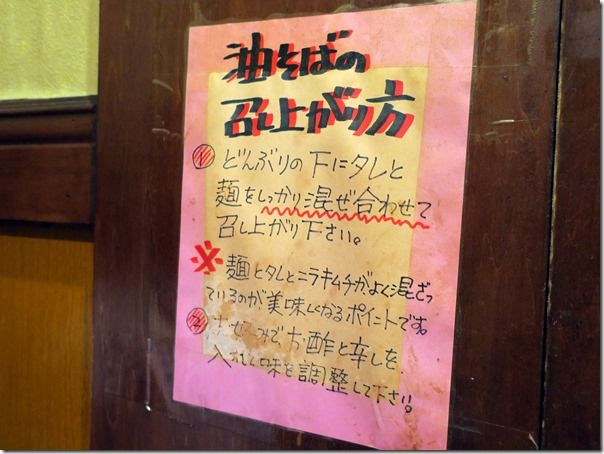 油そばの
召し上がり方
① どんぶりの下にタレと
麺をしっかり混ぜ合わせて
召し上がり下さい。
※ 麺とタレとニラキムチがよく混ざっ
ているのが美味しくなるポイントです。
② お酢と辛しを
入れ味を調整して下さい。